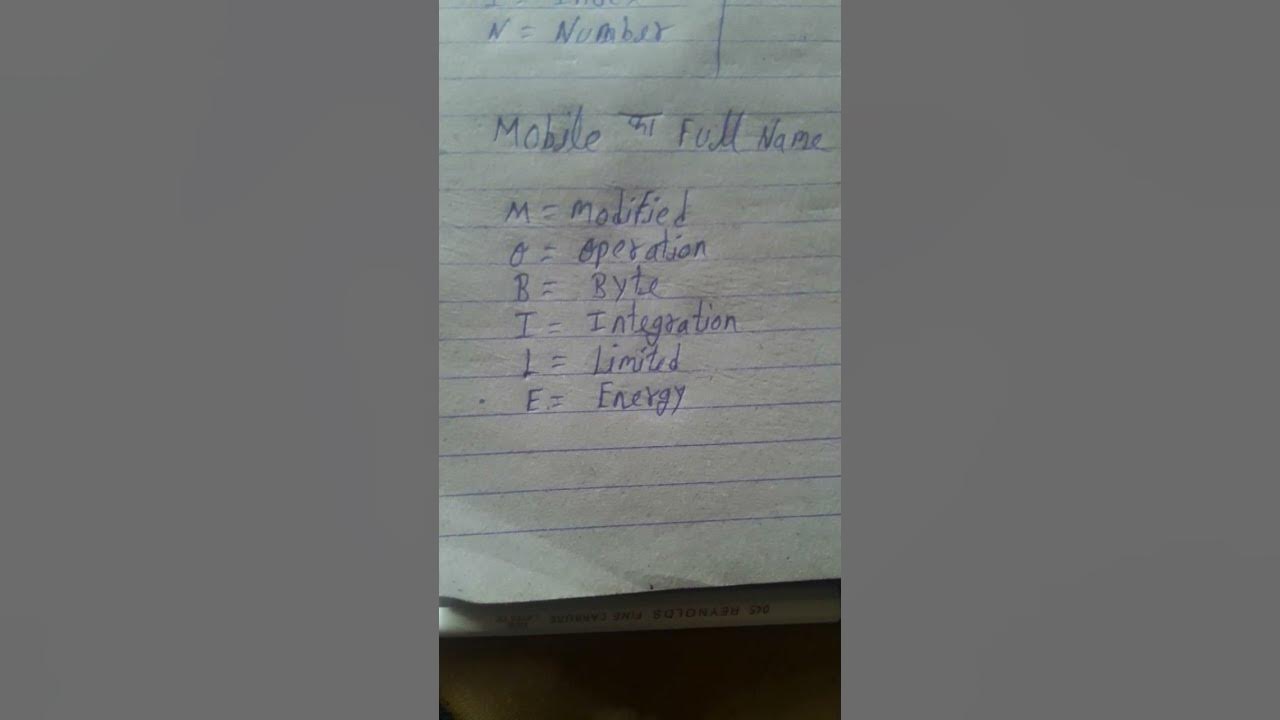 I = Index
N = Number
Mobile का Full Name
M = Modified
O = Operation
B = Byte
I = Integration
L = Limited
E = Energy
045 REYNOLDS FINE CARBURE